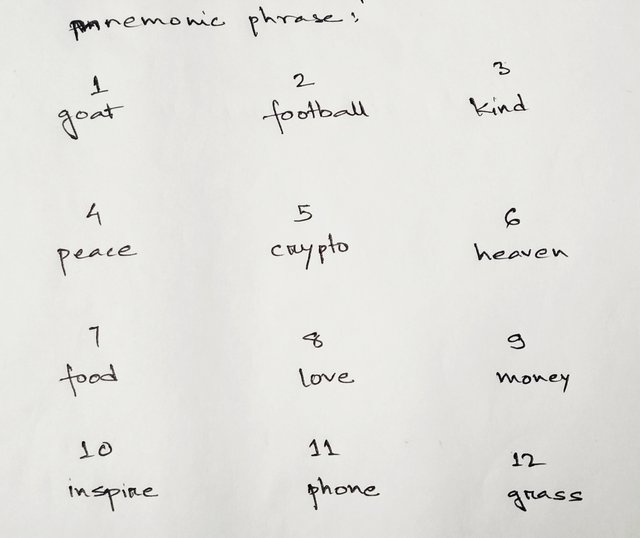 mnemonic phrase:
1 2 3
goat football kind
4 5 6
peace crypto heaven
7 8 9
food love money
10 11 12
inspire phone grass